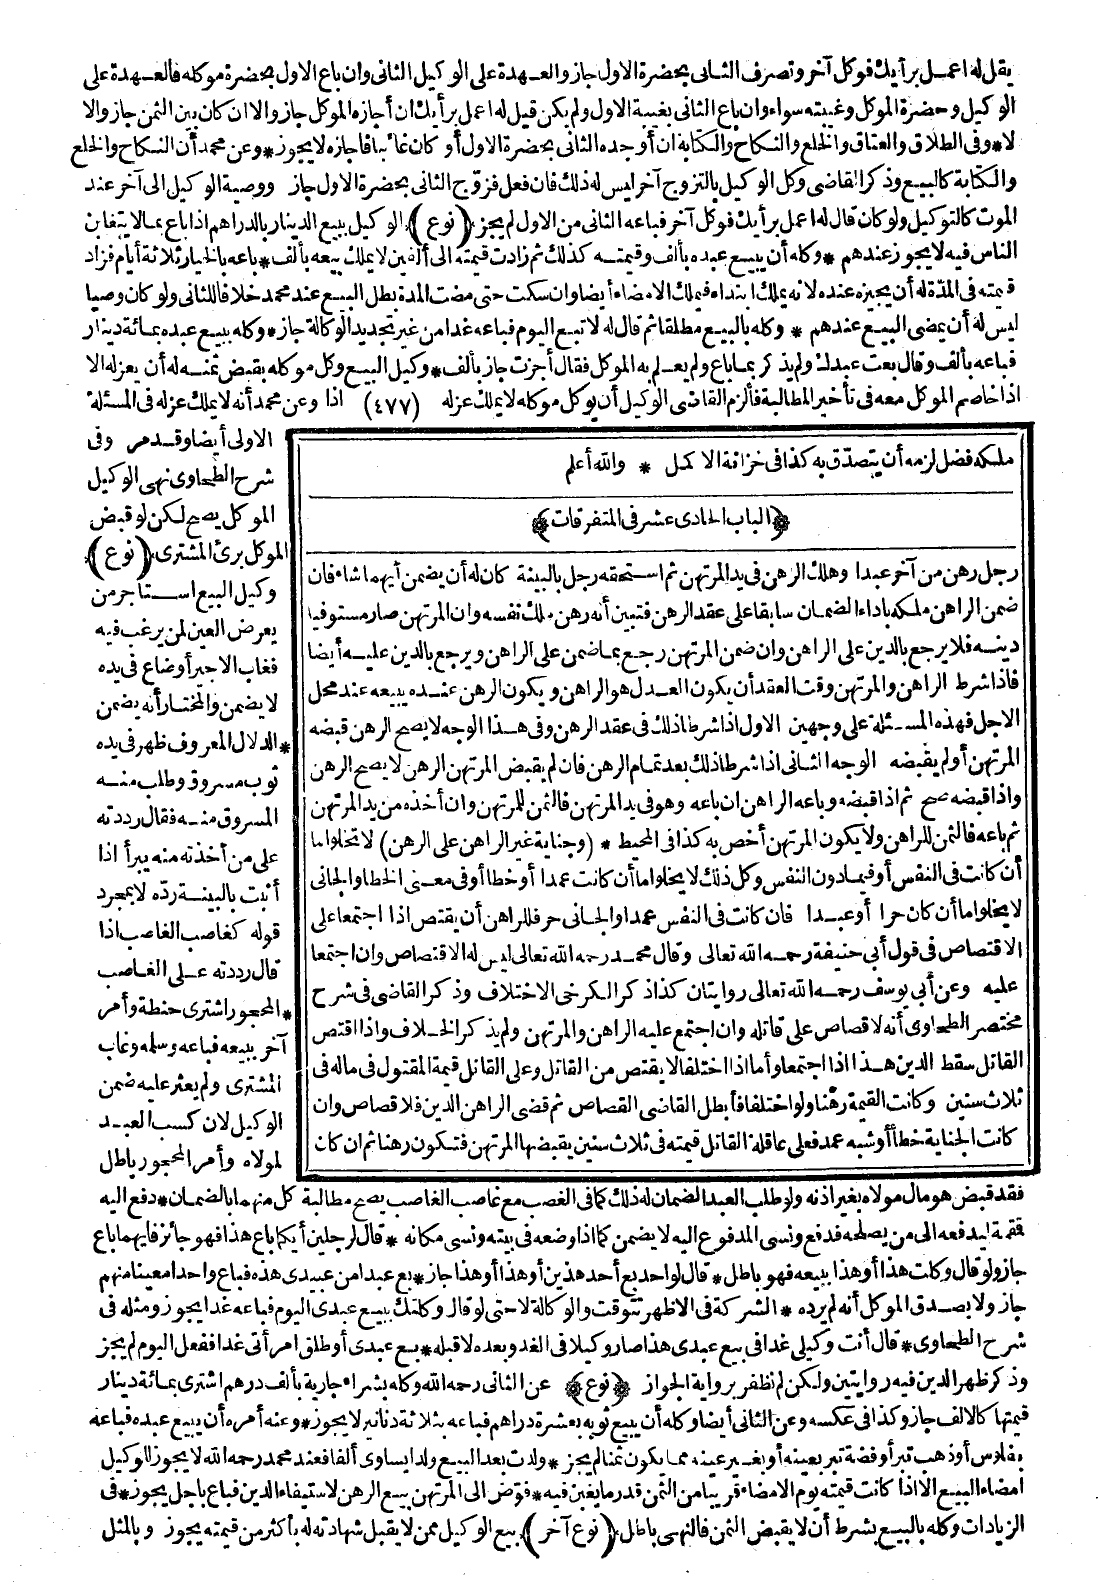 يقل له اعمل برأيك فوكل آخر وتصرف الثانى بحضرة الاول جاز والعهدة على الوكيل الثانى وان باع الاول بحضرة موكله فالعهدة على
الوكيل وحضرة الموكل وغيبته سواء وان باع الثانى بغيبة الاول ولم يكن قيل له اعمل برأيك ان أجازه الموكل جاز والا ان كان بين الثمن جاز والا
لا * وفى الطلاق والعتاق والخلع والنكاح والكتابة ان أوجده الثانى بحضرة الاول أو كان غائبا فاجازه لا يجوز * وعن محمد أن النكاح والخلع
والكتابة كالبيع وذكر القاضى وكل الوكيل بالتزوج آخر ليس له ذلك فان فعل فزوج الثانى بحضرة الاول جاز ووصية الوكيل الى آخر عند
الموت كالتوكيل ولو كان قال له اعمل برأيك فوكل آخر فباعه الثانى من الاول لم يجز (نوع) الوكيل ببيع الدينار بالدراهم اذا باع بما لا يتغابن
الناس فيه لا يجوز عندهم * وكله أن يبيع عبده بألف وقيمته كذلك ثم زادت قيمته الى ألفين لا يملك بيعه بألف * باعه بالخيار ثلاثة أيام فزاد
قيمته فى المدة له أن يجيزه عنده لانه يملك ابتداء فيملك الامضاء أيضا وان سكت حتى مضت المدة بطل البيع عند محمد خلافا للثانى ولو كان وصيا
ليس له أن يمضى البيع عندهم * وكله بالبيع مطلقا ثم قال له لا تبع اليوم فباعه غدا من غير تجديد الوكالة جاز * وكله ببيع عبده بمائة دينار
فباعه بألف وقال بعت عبدك ولم يذكر بما باع ولم يعلم به الموكل فقال أجزت جاز بألف * وكيل البيع وكل موكله بقبض ثمنه له أن يعزله الا
اذا خاصم الموكل معه فى تأخير المطالبة فألزم القاضى الوكيل أن يوكل موكله لا يملك عزله (٤٧٧) اذا وعن محمد أنه لا يملك عزله فى المسئلة
الاولى أيضا وقد مر وفى
شرح الطحاوى نهى الوكيل
الموكل يصح لكن لو قبض
الموكل برئ المشترى (نوع)
وكيل البيع استأجر من
يعرض العين لمن يرغب فيه
فغاب الاجير أو ضاع فى يده
لا يضمن والمختار أنه يضمن
* الدلال المعروف ظهر فى يده
ثوب مسروق وطلب منه
المسروق منه فقال رددته
على من أخذته منه يبرأ اذا
أثبت بالبينة رده لا بمجرد
قوله كغاصب الغاصب اذا
قال رددته على الغاصب
* المحجور اشترى حنطة وأمر
آخر ببيعه فباعه وسلمه وغاب
المشترى ولم يعثر عليه ضمن
الوكيل لان كسب العبد
لمولاه وأمر المحجور باطل
ملكه فضل لزمه أن يتصدق به كذا فى خزانة الاكمل * والله أعلم
﴿الباب الحادى عشر فى المتفرقات﴾
رجل رهن من آخر عبدا وهلك الرهن فى يد المرتهن ثم استحقه رجل بالبينة كان له أن يضمن أيهما شاء فان
ضمن الراهن ملكه باداء الضمان سابقا على عقد الرهن فتبين أنه رهن ملك نفسه وان المرتهن صار مستوفيا
دينه فلا يرجع بالدين على الراهن وان ضمن المرتهن رجع بما ضمن على الراهن ويرجع بالدين عليه أيضا
فاذا شرط الراهن والمرتهن وقت العقد أن يكون العدل هو الراهن ويكون الرهن عنده يبيعه عند محل
الاجل فهذه المسئلة على وجهين الاول اذا شرطا ذلك فى عقد الرهن وفى هذا الوجه لا يصح الرهن قبضه
المرتهن أو لم يقبضه الوجه الثانى اذا شرطا ذلك بعد تمام الرهن فان لم يقبض المرتهن الرهن لا يصح الرهن
واذا قبضه صح ثم اذا قبضه وباعه الراهن ان باعه وهو فى يد المرتهن فالثمن للمرتهن وان أخذه من يد المرتهن
ثم باعه فالثمن للراهن ولا يكون المرتهن أخص به كذا فى المحيط * (وجناية غير الراهن على الرهن) لا تخلو اما
أن كانت فى النفس أو فيما دون النفس وكل ذلك لا يخلو اما أن كانت عمدا أو خطأ أو فى معنى الخطا والجانى
لا يخلو اما أن كان حرا أو عبدا فان كانت فى النفس عمدا والجانى حر فللراهن أن يقتص اذا اجتمعا على
الاقتصاص فى قول أبى حنيفة رحمه الله تعالى وقال محمد رحمه الله تعالى ليس له الاقتصاص وان اجتمعا
عليه وعن أبى يوسف رحمه الله تعالى روايتان كذا ذكر الكرخى الاختلاف وذكر القاضى فى شرح
مختصر الطحاوى أنه لا قصاص على قاتله وان اجتمع عليه الراهن والمرتهن ولم يذكر الخلاف واذا اقتص
القاتل سقط الدين هذا اذا اجتمعا وأما اذا اختلفا لا يقتص من القاتل وعلى القاتل قيمة المقتول فى ماله فى
ثلاث سنين وكانت القيمة رهنا ولو اختلفا فأبطل القاضى القصاص ثم قضى الراهن الدين فلا قصاص وان
كانت الجناية خطأ أو شبه عمد فعلى عاقلة القاتل قيمته فى ثلاث سنين يقبضها المرتهن فتكون رهنا ثم ان كان
فقد قبض هو مال مولاه بغير اذنه ولو طلب العبد الضمان له ذلك كما فى الغصب مع غاصب الغاصب يصح مطالبة كل منهما بالضمان * دفع اليه
فقمة ليدفعه الى من يصلحه فدفع ونسى المدفوع اليه لا يضمن كما اذا وضعه فى بيته ونسى مكانه * قال لرجلين أيكما باع هذا فهو جائز فايهما باع
جاز ولو قال وكلت هذا أو هذا ببيعه فهو باطل * قال لواحد بع أحد هذين أو هذا أو هذا جاز * بع عبدا من عبيدى هذه فباع واحدا معينا منهم
جاز ولا يصدق الموكل أنه لم يرده * الشركة فى الاظهر تتوقت والوكالة لا حتى لو قال وكلتك ببيع عبدى اليوم فباعه غدا يجوز ومثله فى
شرح الطحاوى * قال أنت وكيلى غدا فى بيع عبدى هذا صار وكيلا فى الغد وبعده لا قبله * بع عبدى أو طلق امرأتى غدا ففعل اليوم لم يجز
وذكر ظهر الدين فيه روايتين ولكن لم نظفر برواية الجواز ﴿نوع﴾ عن الثانى رحمه الله وكله بشراء جارية بألف درهم اشترى بمائة دينار
قيمتها كالالف جاز وكذا فى عكسه وعن الثانى أيضا وكله أن يبيع ثوبه بعشرة دراهم فباعه بثلاثة دنانير لا يجوز * وعنه أمره أن يبيع عبده فباعه
بفلوس أو ذهب تبر أو فضة تبر بعينه أو بغير عينه مما يكون ثمنا لم يجز * ولدت بعد البيع ولدا يساوى ألفا فعند محمد رحمه الله لا يجوز للوكيل
امضاء البيع الا اذا كانت قيمته يوم الامضاء قريبا من الثمن قدر ما يغبن فيه * فوض الى المرتهن بيع الرهن لاستيفاء الدين فباع باجل يجوز * فى
الزيادات وكله بالبيع بشرط أن لا يقبض الثمن فالنهى باطل (نوع آخر) بيع الوكيل ممن لا يقبل شهادته له بأكثر من قيمته يجوز وبالمثل